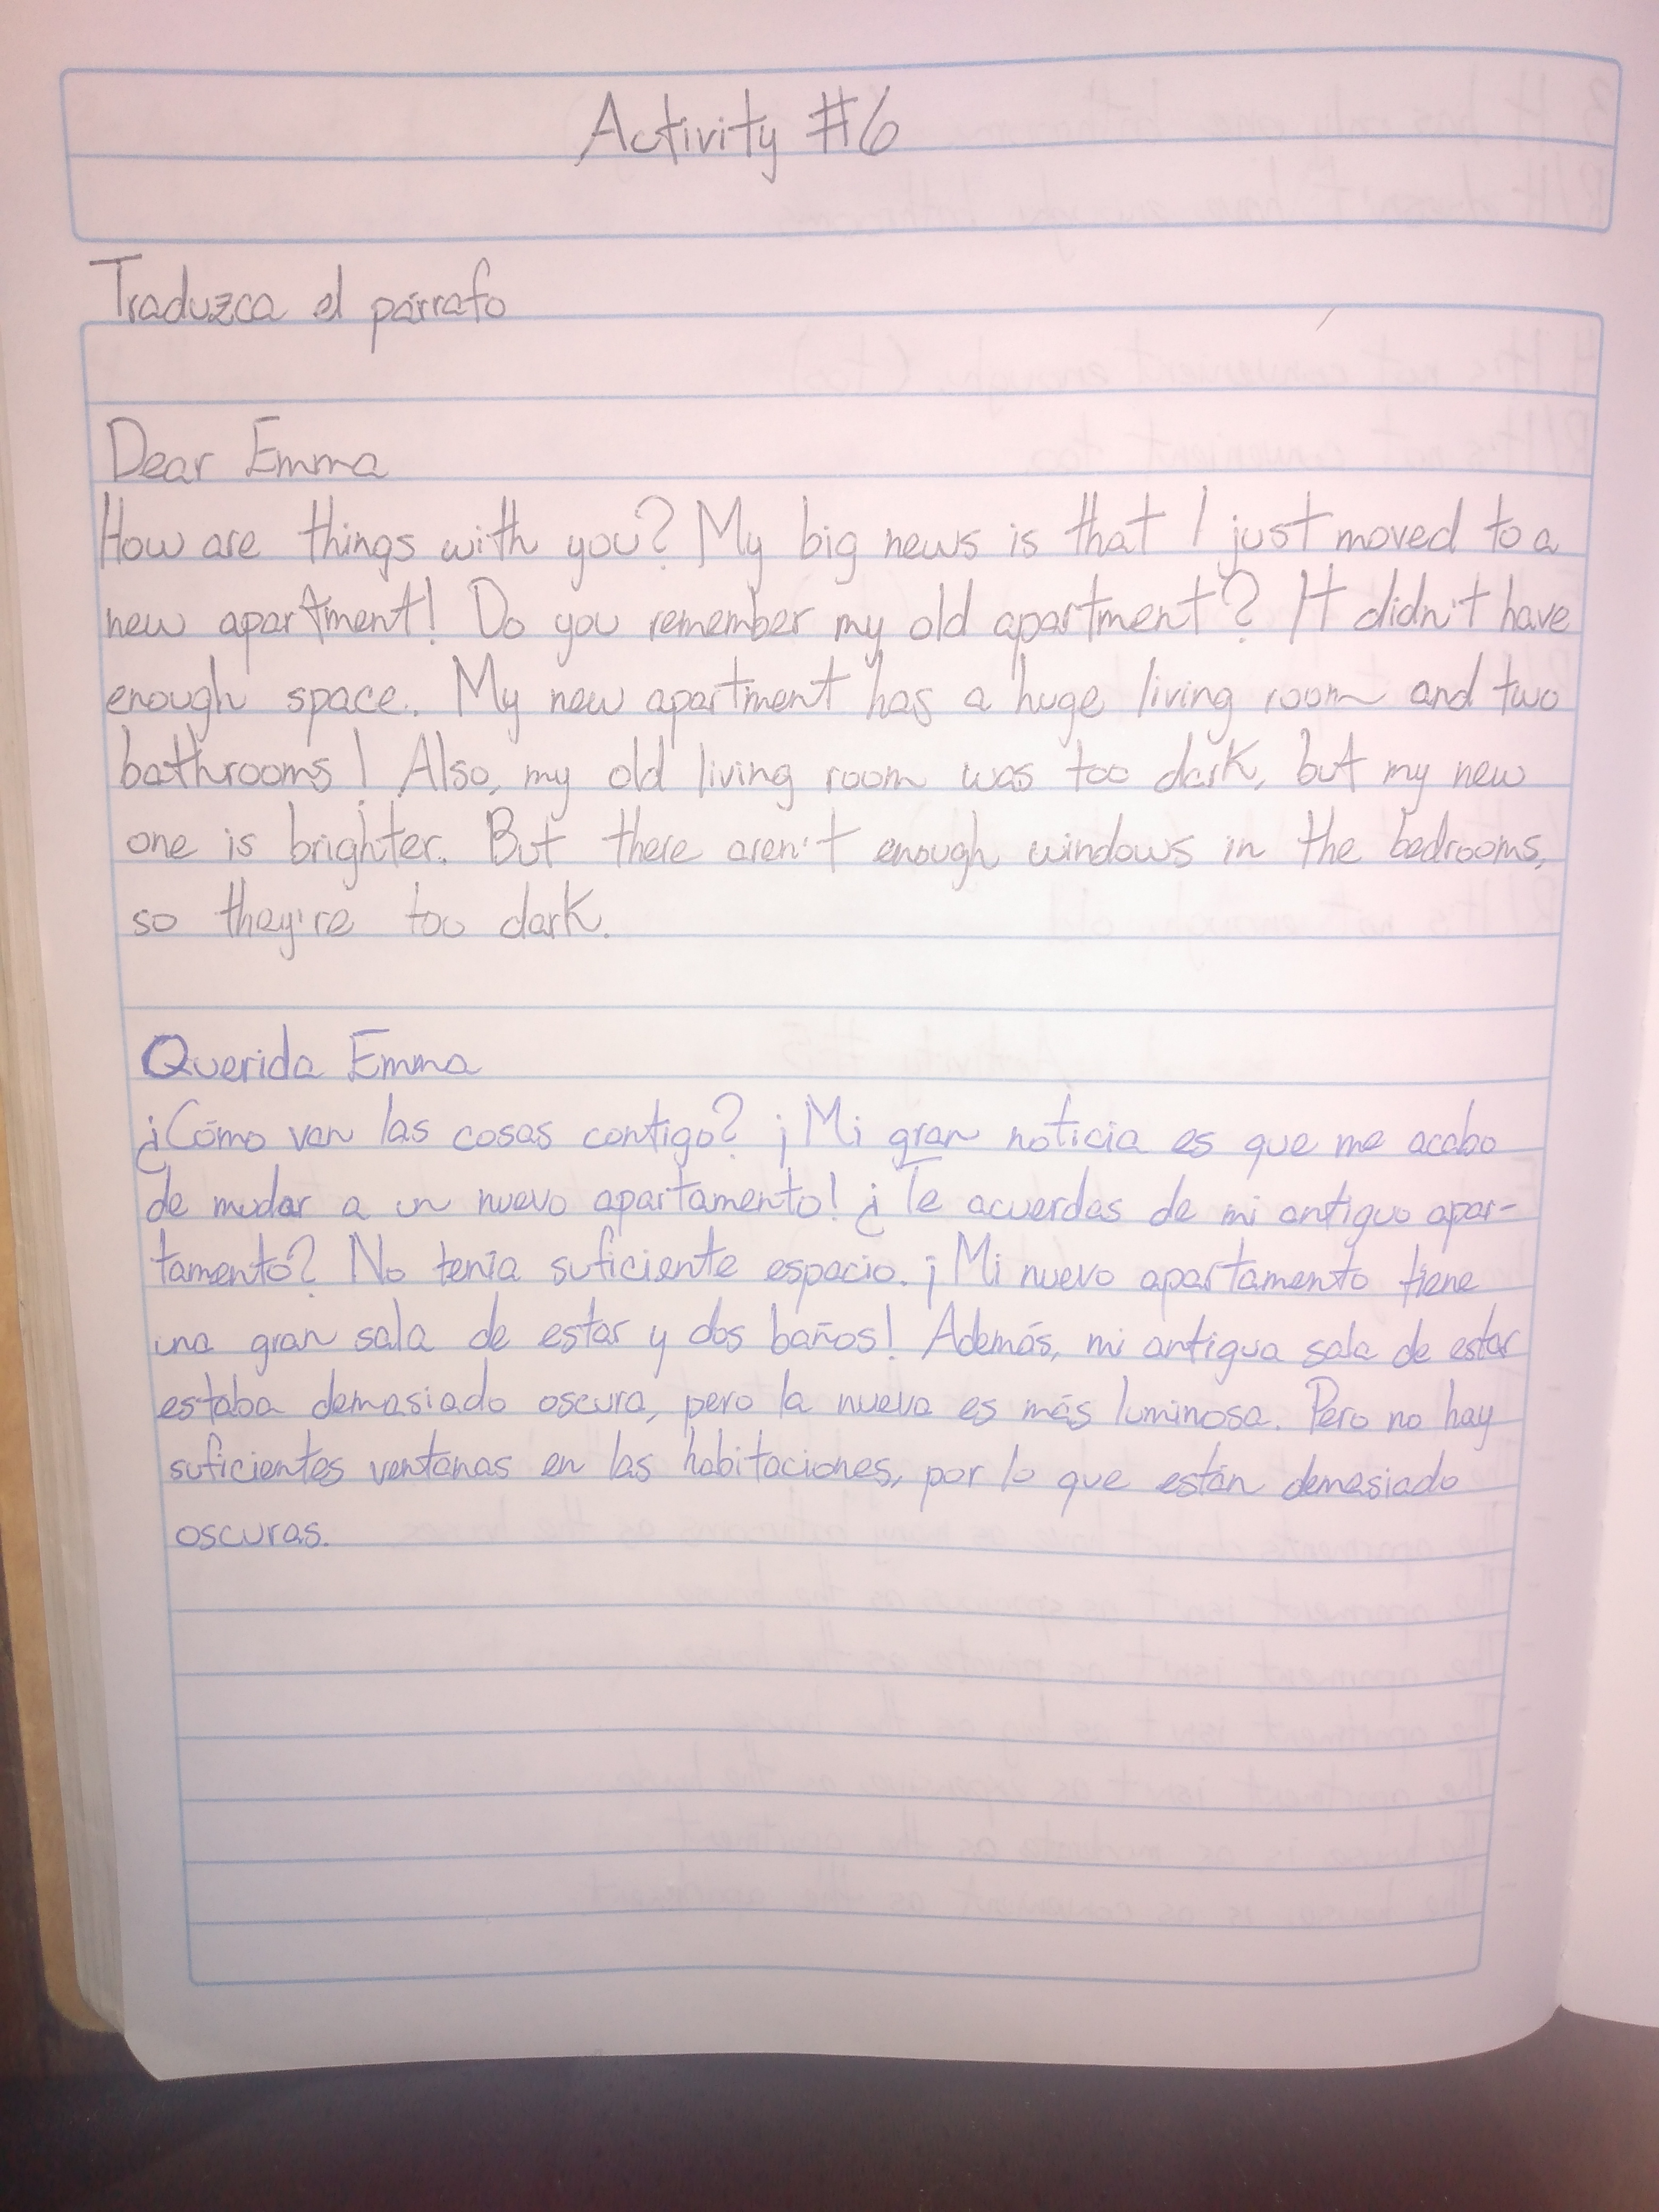 Activity #6
Traduzca el párrafo
Dear Emma
How are things with you? My big news is that I just moved to a
new apartment! Do you remember my old apartment? It didn't have
enough space. My new apartment has a huge living room and two
bathrooms! Also, my old living room was too dark, but my new
one is brighter. But there aren't enough windows in the bedrooms,
so they're too dark.
Querida Emma
¿Cómo van las cosas contigo? ¡Mi gran noticia es que me acabo
de mudar a un nuevo apartamento! ¿Te acuerdas de mi antiguo apar-
tamento? No tenía suficiente espacio. ¡Mi nuevo apartamento tiene
una gran sala de estar y dos baños! Además, mi antigua sala de estar
estaba demasiado oscura, pero la nueva es más luminosa. Pero no hay
suficientes ventanas en las habitaciones, por lo que están demasiado
oscuras.